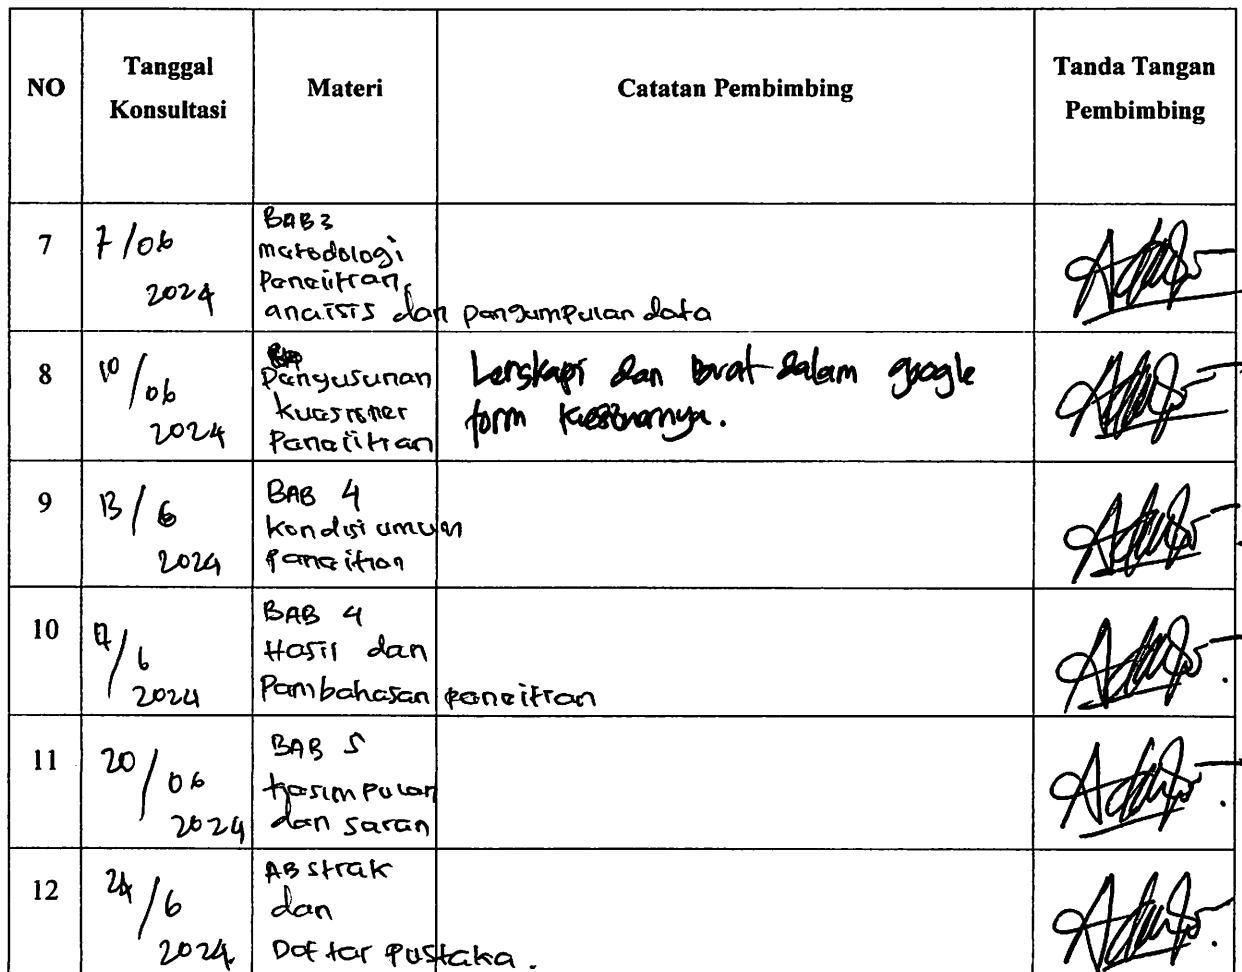 NO
Tanggal Konsultasi
Materi
Catatan Pembimbing
Tanda Tangan Pembimbing
7
7/06 2024
BAB 3
metodologi
Penelitian,
analisis dan pengumpulan data
8
10/06 2024
Penyusunan
kuesioner
Penelitian
Lengkapi dan buat dalam google
form kuesionernya.
9
13/6 2024
BAB 4
kondisi umum
Penelitian
10
17/6 2024
BAB 4
Hasil dan
Pembahasan penelitian
11
20/06 2024
BAB 5
kesimpulan
dan saran
12
24/6 2024
ABstrak
dan
Daftar pustaka.